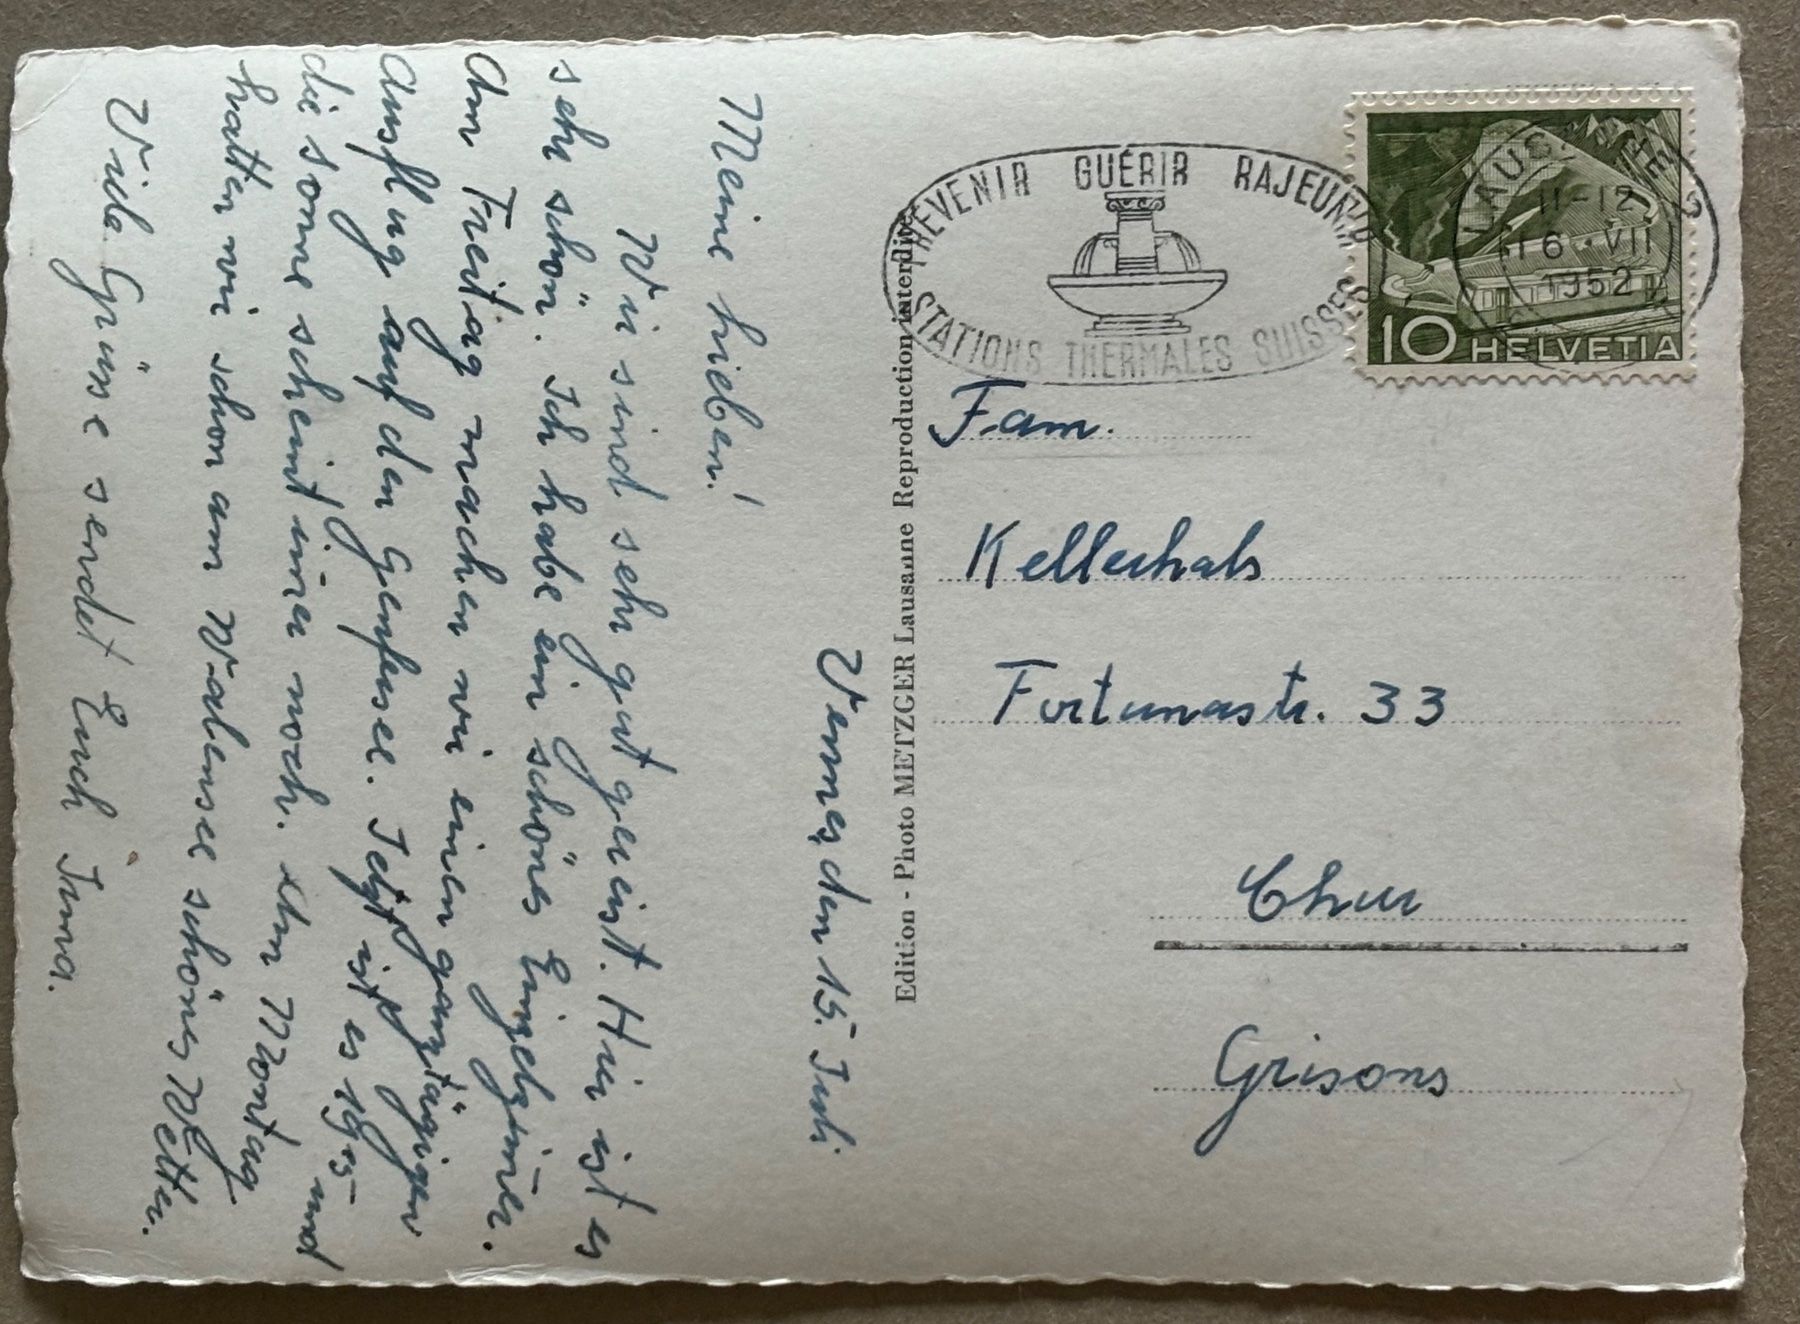 Vennes, den 15. Juli.
Meine Lieben!
Wir sind sehr gut gereist. Hier ist es
sehr schön. Ich habe ein schönes Einzelzimer.
Am Freitag machen wir einen ganztägigen
Ausflug auf den Genfersee. Jetzt ist es 19⁰⁵ und
die sonne scheint imer noch. Am Montag
hatten wir schon am Walensee schönes Wetter.
Viele Grüsse sendet Euch Irma.
Edition - Photo METZGER Lausanne Reproduction interdite
PRÉVENIR GUÉRIR RAJEUNIR
STATIONS THERMALES SUISSES
11-12
16.VII
1952
10 HELVETIA
Fam.
Kellerhals
Fortunastr. 33
Chur
Grisons